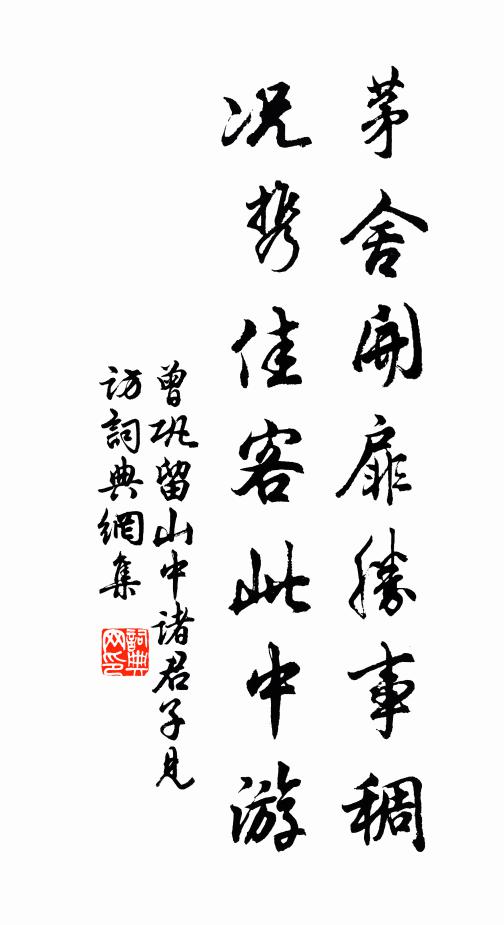 茅舍開扉勝事稠
况攜佳客此中游
曾巩留山中諸君子見
访詞典網集
詞典
网印